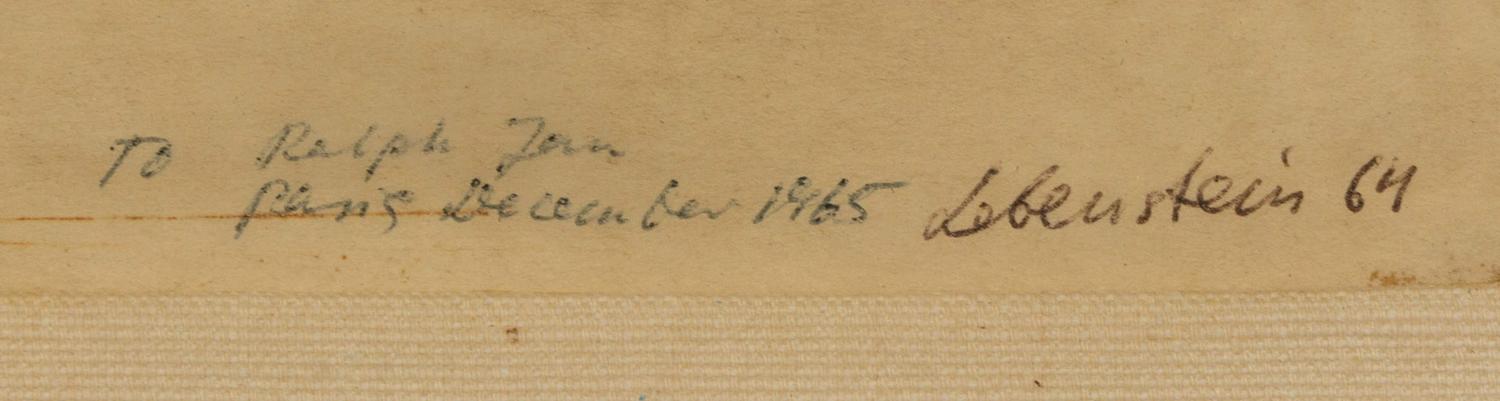 To Ralph Jan
Paris December 1965
Lebenstein 64